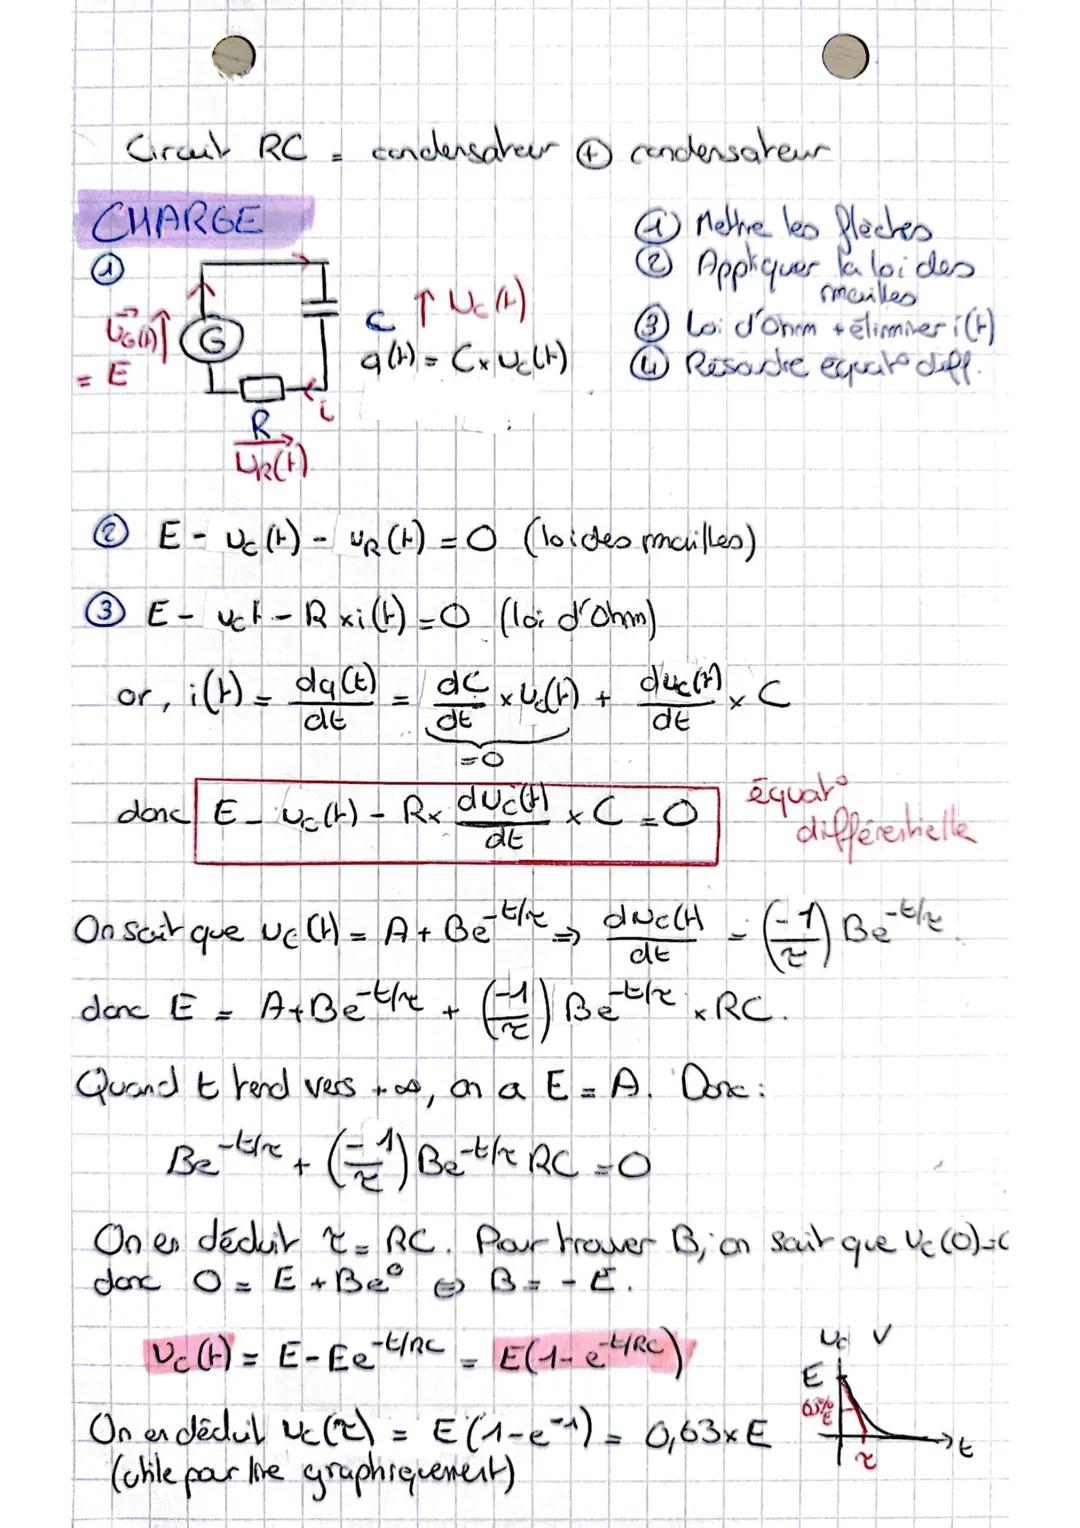 Circuit RC = condensateur ⊕ condensateur
CHARGE
① Mettre les flèches
② Appliquer la loi des mailles
③ Loi d'Ohm + éliminer i(t)
④ Résoudre équat° diff.
①
U_G(t) = E
G
C
↑ U_c(t)
q(t) = C × U_c(t)
i
R
U_R(t)
② E - u_c(t) - u_R(t) = 0 (loi des mailles)
③ E - u_c t - R × i(t) = 0 (loi d'Ohm)
or, i(t) = dq(t)/dt = dC/dt × U_c(t) + du_c(t)/dt × C
=0
donc E - u_c(t) - R × du_c(t)/dt × C = 0
équat° différentielle
On sait que u_c(t) = A + Be^-t/τ ⇒ du_c(t)/dt = (-1/τ) Be^-t/τ.
donc E = A + Be^-t/τ + (-1/τ) Be^-t/τ × RC.
Quand t tend vers +∞, on a E = A. Donc :
Be^-t/τ + (-1/τ) Be^-t/τ RC = 0
On en déduit τ = RC. Pour trouver B, on sait que U_c(0)=0
donc 0 = E + Be^0 ⇔ B = - E.
U_c(t) = E - Ee^-t/RC = E(1 - e^-t/RC)
U_c V
E
63% E
τ
t
On en déduit u_c(τ) = E(1 - e^-1) = 0,63 × E
(utile par lire graphiquement)